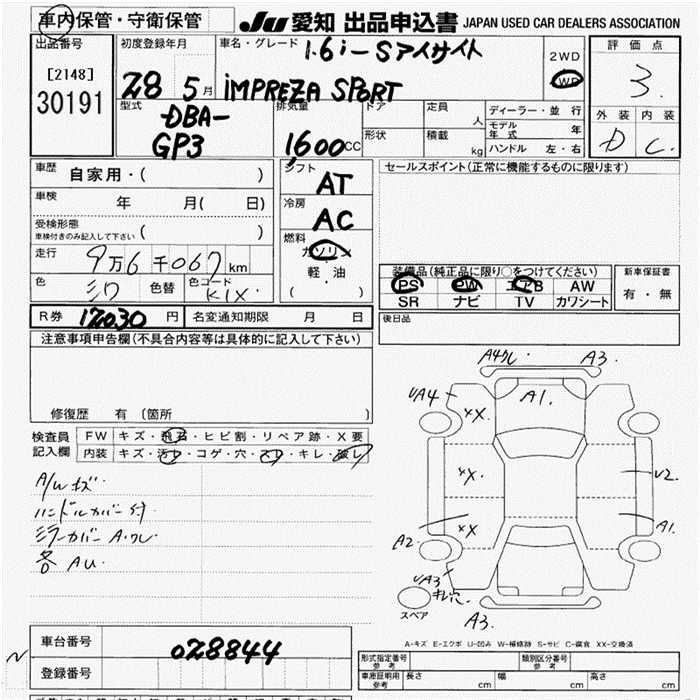 車内保管・守衛保管
JU 愛知 出品申込書 JAPAN USED CAR DEALERS ASSOCIATION
出品番号
[2148]
30191
初度登録年月
28 5月
車名・グレード
1.6i-Sアイサイト
IMPREZA SPORT
2WD
4WD
評価点
3.
外装 内装
D C.
型式
DBA-
GP3
排気量
1,600CC
ドア
定員 人
形状
積載 kg
ディーラー・並行
モデル年式 年
ハンドル 左・右
車歴 自家用・( )
車検 年 月( 日)
受検形態
車検付きのみ記入して下さい ( )
走行 9万6千067km
色 シロ 色替 色コード K1X
シフト
AT
冷房
AC
燃料
ガソリン
軽・油
( )
セールスポイント(正常に機能するものに限ります)
装備品(純正品に限り○をつけてください)
PS PW エアB AW
SR ナビ TV カワシート
新車保証書
有・無
R券 12030円 名変通知期限 月 日
後日品
注意事項申告欄(不具合内容等は具体的に記入して下さい)
修復歴 有(箇所 )
検査員
記入欄
FW キズ・飛石・ヒビ割・リペア跡・X要
内装 キズ・汚レ・コゲ・穴・スレ・キレ・破レ
A/Wキズ
ハンドルカバー付
ミラーカバーA・ワレ
各AU
A4ワレ A3.
UA4 XX. A1.
XX. U2.
XX
A2. A1.
UA3 キレ穴
スペア
A3.
A-キズ E-エクボ U-凹み W-補修跡 S-サビ C-腐食 XX-交換済
車台番号 028844
登録番号
形式指定番号
参考
類別区分番号
参考
車庫証明用
参考
長さ cm 幅 cm 高さ cm